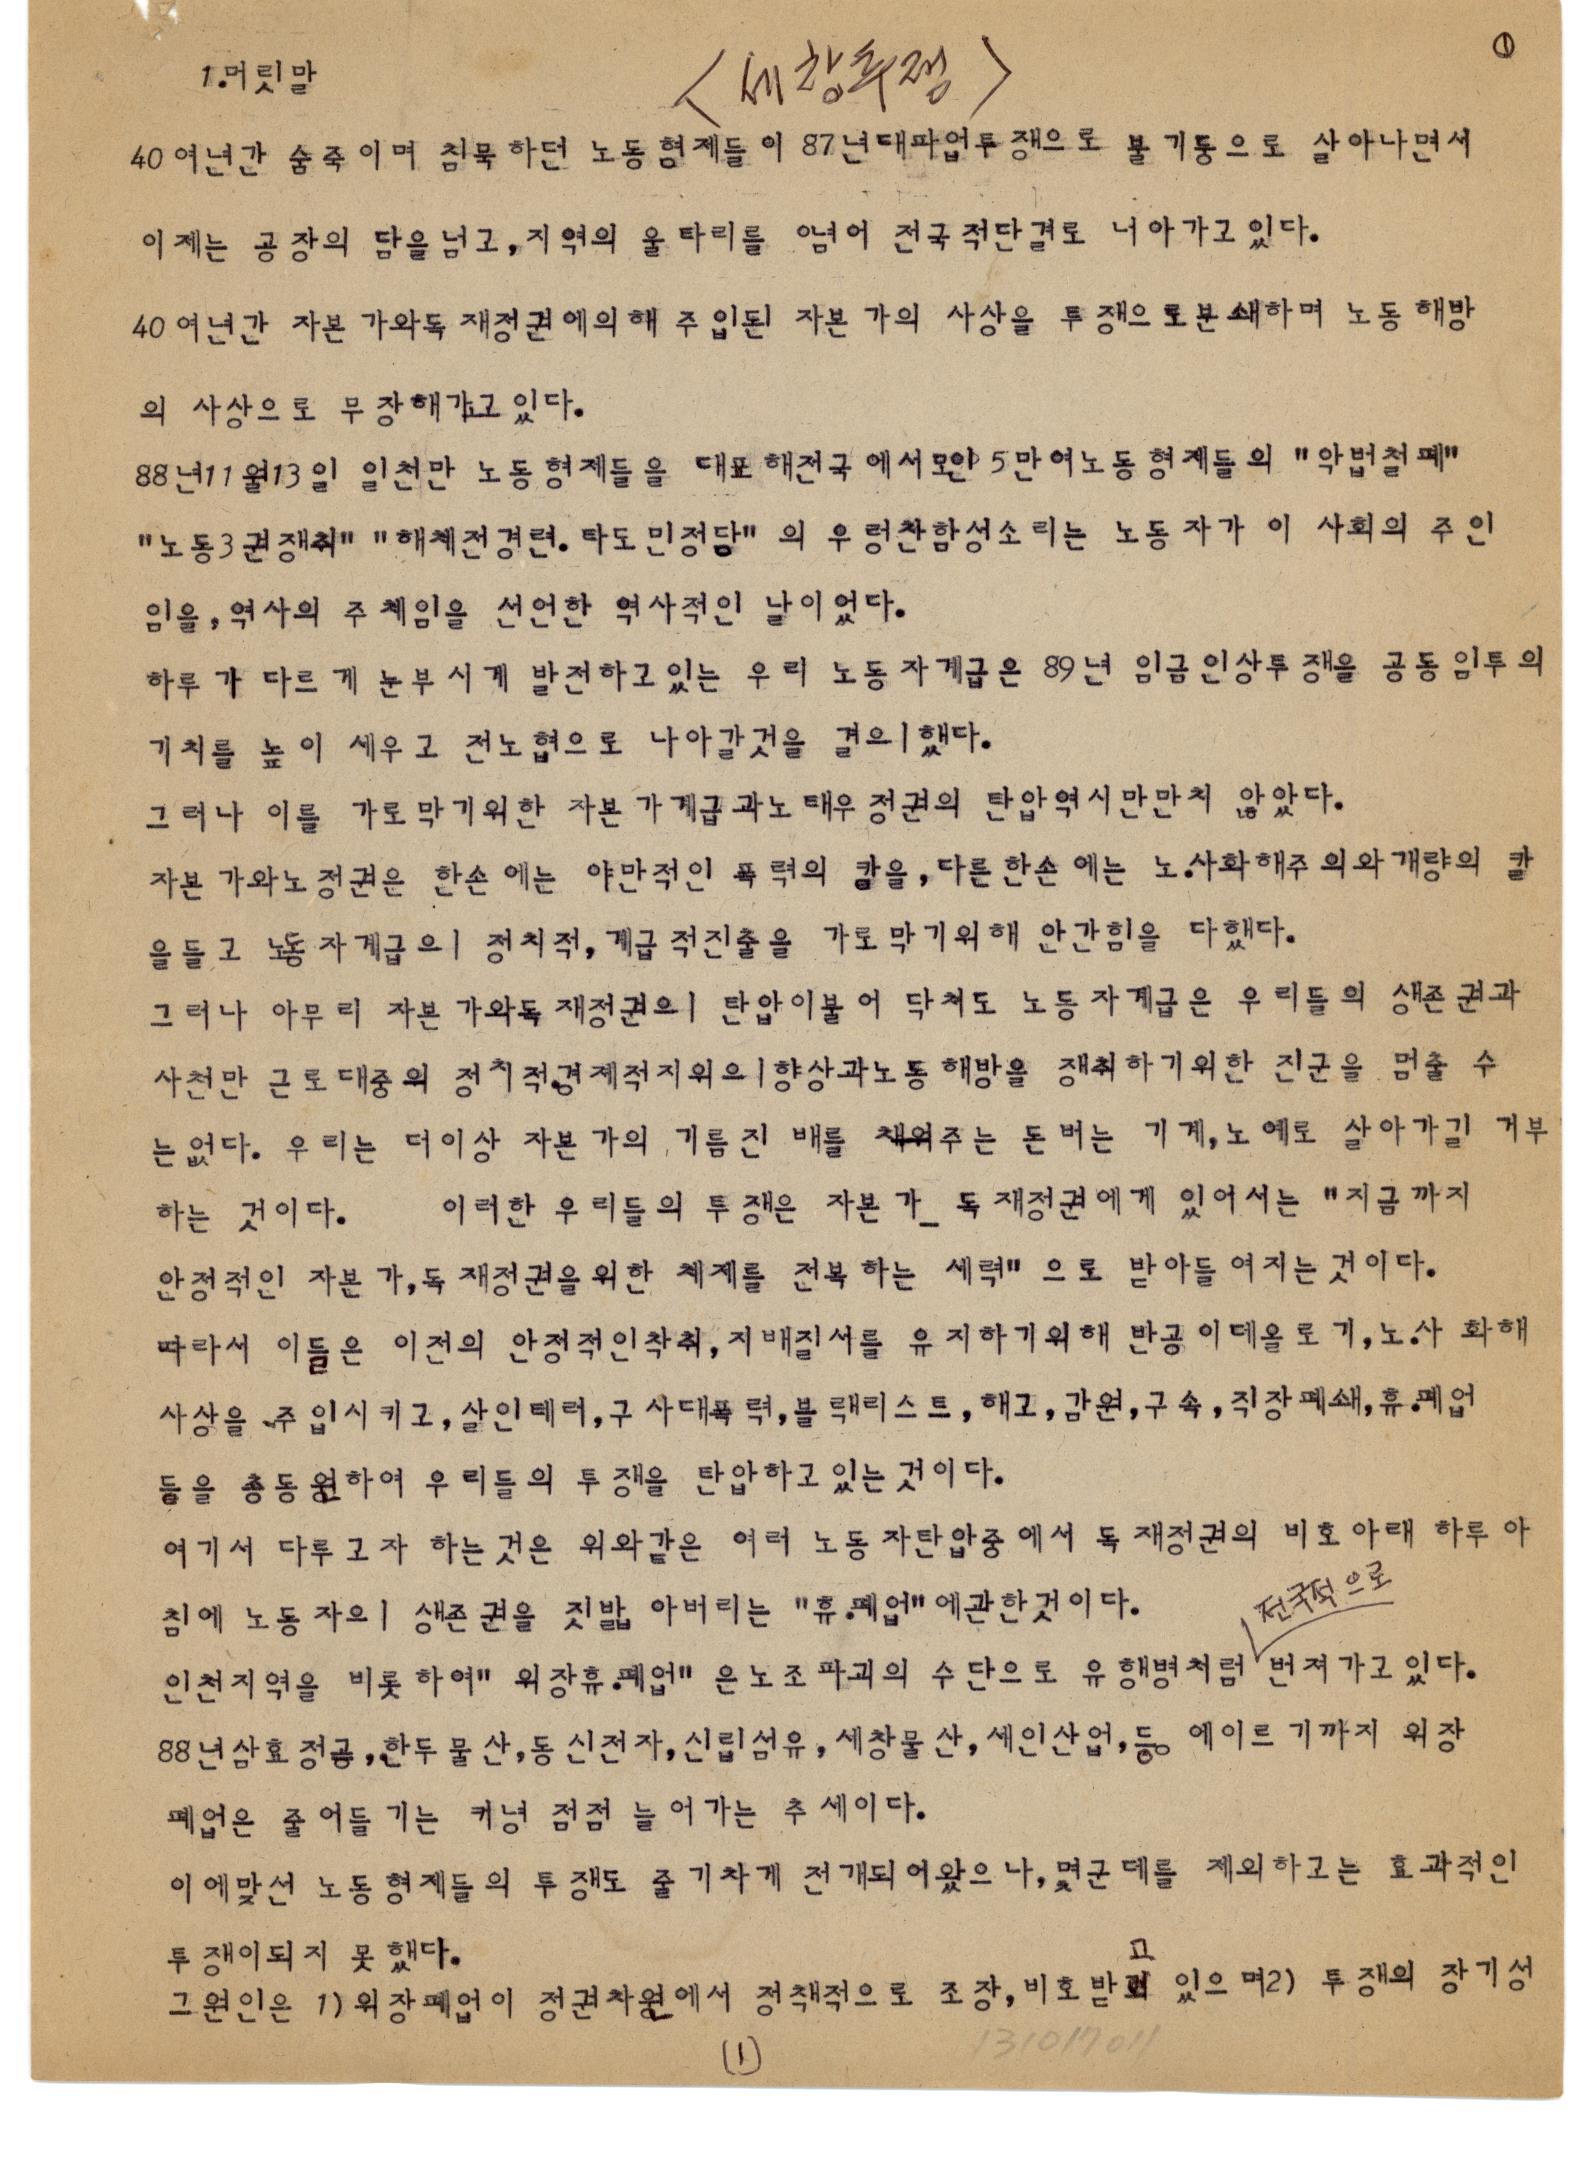 ①
<세창투쟁>
1.머릿말
40여년간 숨죽이며 침묵하던 노동형제들이 87년대파업투쟁으로 불기둥으로 살아나면서
이제는 공장의 담을넘고,지역의 울타리를 넘어 전국적단결로 너아가고있다.
40여년간 자본가와독재정권에의해 주입된 자본가의 사상을 투쟁으로분쇄하며 노동해방
의 사상으로 무장해가고있다.
88년11월13일 일천만 노동형제들을 대표해전국에서모인 5만여노동형제들의 "악법철폐"
"노동3권쟁취" "해체전경련.타도민정당" 의 우렁찬함성소리는 노동자가 이 사회의 주인
임을,역사의 주체임을 선언한 역사적인 날이었다.
하루가 다르게 눈부시게 발전하고있는 우리 노동자계급은 89년 임금인상투쟁을 공동임투의
기치를 높이 세우고 전노협으로 나아갈것을 결으ㅣ했다.
그러나 이를 가로막기위한 자본가계급과노태우정권의 탄압역시만만치 않았다.
자본가와노정권은 한손에는 야만적인 폭력의 칼을,다른한손에는 노.사화해주의와개량의 칼
을들고 노동자계급으ㅣ 정치적,계급적진출을 가로막기위해 안간힘을 다했다.
그러나 아무리 자본가와독재정권으ㅣ 탄압이불어 닥쳐도 노동자계급은 우리들의 생존권과
사천만 근로대중의 정치적.경제적지위으ㅣ향상과노동해방을 쟁취하기위한 진군을 멈출 수
는없다. 우리는 더이상 자본가의 기름진 배를 채워주는 돈버는 기계,노예로 살아가길 거부
하는 것이다. 이러한 우리들의 투쟁은 자본가_ 독재정권에게 있어서는 "지금까지
안정적인 자본가,독재정권을위한 체제를 전복하는 세력" 으로 받아들여지는것이다.
따라서 이들은 이전의 안정적인착취,지배질서를 유지하기위해 반공이데올로기,노.사 화해
사상을 주입시키고,살인테러,구사대폭력,블랙리스트,해고,감원,구속,직장폐쇄,휴.폐업
등을 총동원하여 우리들의 투쟁을 탄압하고있는것이다.
여기서 다루고자 하는것은 위와같은 여러 노동자탄압중에서 독재정권의 비호아래 하루아
침에 노동자으ㅣ 생존권을 짓밟아버리는 "휴.폐업"에관한것이다.
전국적으로
인천지역을 비롯하여" 위장휴.폐업" 은노조파괴의 수단으로 유행병처럼 번져가고있다.
88년삼효정공,한두물산,동신전자,신립섬유,세창물산,세인산업,등에이르기까지 위장
폐업은 줄어들기는 커녕 점점 늘어가는 추세이다.
이에맞선 노동형제들의 투쟁도 줄기차게 전개되어왔으나,몇군데를 제외하고는 효과적인
투쟁이되지 못했다.
그원인은 1)위장폐업이 정권차원에서 정책적으로 조장,비호받고 있으며2) 투쟁의 장기성
(1)
131017011